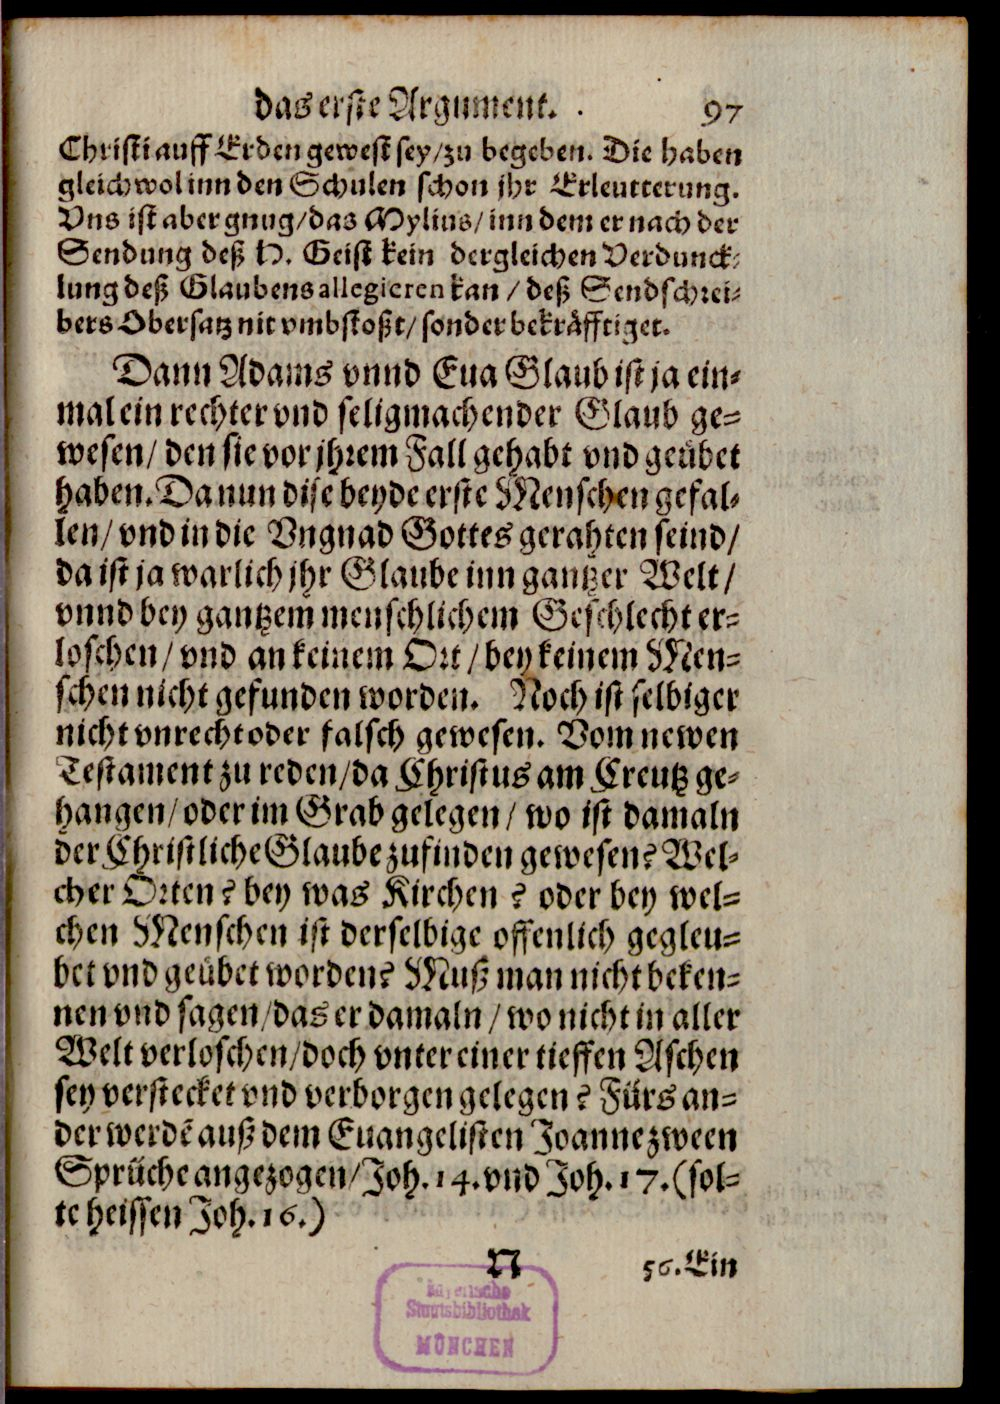 das erste Argument. 97
Christi auff Erden gewest sey/zu begeben. Die haben
gleichwol inn den Schulen schon jhr Erleutterung.
Vns ist aber gnug/das Mylius/inn dem er nach der
Sendung deß H. Geist kein dergleichen Verdunck-
lung deß Glaubens allegieren kan / deß Sendschrei-
bers Obersatz nit vmbstoßt/sonder bekräfftiget.
Dann Adams vnnd Eua Glaub ist ja ein-
mal ein rechter vnd seligmachender Glaub ge-
wesen/ den sie vor jhrem Fall gehabt vnd geübet
haben. Da nun dise beyde erste Menschen gefal-
len/ vnd in die Vngnad Gottes gerahten seind/
da ist ja warlich jhr Glaube inn gantzer Welt/
vnnd bey gantzem menschlichem Geschlecht er-
loschen/ vnd an keinem Ort / bey keinem Men-
schen nicht gefunden worden. Noch ist selbiger
nicht vnrecht oder falsch gewesen. Vom newen
Testament zu reden/da Christus am Creutz ge-
hangen/ oder im Grab gelegen / wo ist damaln
der Christliche Glaube zufinden gewesen? Wel-
cher Orten? bey was Kirchen ? oder bey wel-
chen Menschen ist derselbige offenlich gegleu-
bet vnd geübet worden? Muß man nicht beken-
nen vnd sagen/das er damaln / wo nicht in aller
Welt verloschen/doch vnter einer tieffen Aschen
sey verstecket vnd verborgen gelegen? Fürs an-
der werdē auß dem Euangelisten Joanne zween
Sprüche angezogen/Joh. 14. vnd Joh. 17. (sol-
te heissen Joh. 16.)
N 56. Ein
Bayerische
Staatsbibliothek
MÜNCHEN